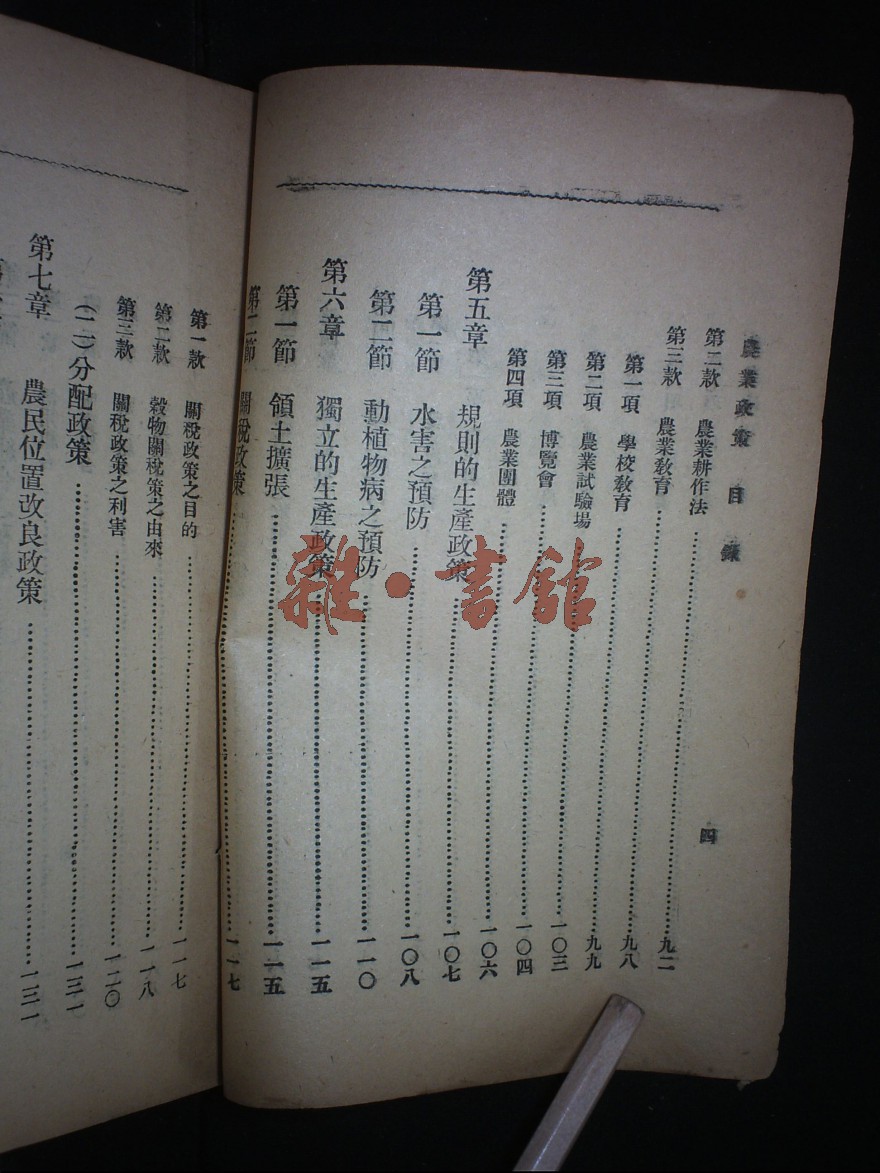 農業政策 目錄 四
第二款 農業耕作法……九二
第三款 農業敎育……九八
第一項 學校敎育……九九
第二項 農業試驗場……一〇三
第三項 博覽會……一〇四
第四項 農業團體……一〇六
第五章 規則的生產政策……一〇七
第一節 水害之預防……一〇八
第二節 動植物病之預防……一一〇
第六章 獨立的生產政策……一一五
第一節 領土擴張……一一五
第二節 關稅政策……一一七
第一款 關稅政策之目的……一一七
第二款 穀物關稅策之由來……一一八
第三款 關稅政策之利害……一二〇
(二)分配政策……一三一
第七章 農民位置改良政策……一三一
雜·書館